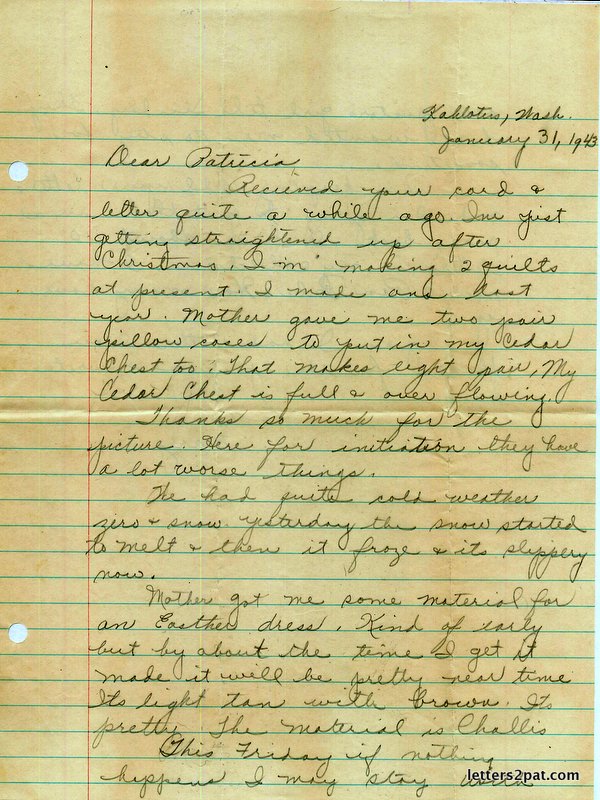 Kahlotus, Wash.
January 31, 1943
Dear Patricia,
Recieved your card &
letter quite a while ago. Im just
getting straightened up after
Christmas. I'm making 2 quilts
at present. I made one last
year. Mother gave me two pair
pillow cases to put in my Cedar
Chest too. That makes eight pair. My
Cedar Chest is full & over flowing.
Thanks so much for the
picture. Here for initiation they have
a lot worse things.
We had quite cold weather
zero & snow. Yesterday the snow started
to melt & then it froze & its slippery
now.
Mother got me some material for
an Easther dress. Kind of early
but by about the time I get it
made it will be pretty near time
Its light tan with brown. Its
pretty. The material is Challis
This Friday if nothing
happens I may stay with
letters2pat.com